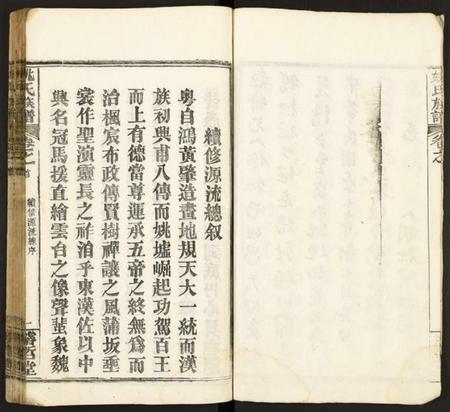 續修源流總叙
粵自鴻黃肇造畫地規天大一統而漢
族初興甫八傳而姚墟崛起功駕百王
而上有德當尊運承五帝之終無爲而
治楓宸布政傳賢樹禪讓之風蒲坂垂
裳作聖演靈長之祚洎乎東漢佐以中
興名冠馬援直繪雲台之像聲蜚象魏
姚氏族譜
卷之首
續修源流總序
一
堂
姚氏族譜
卷之